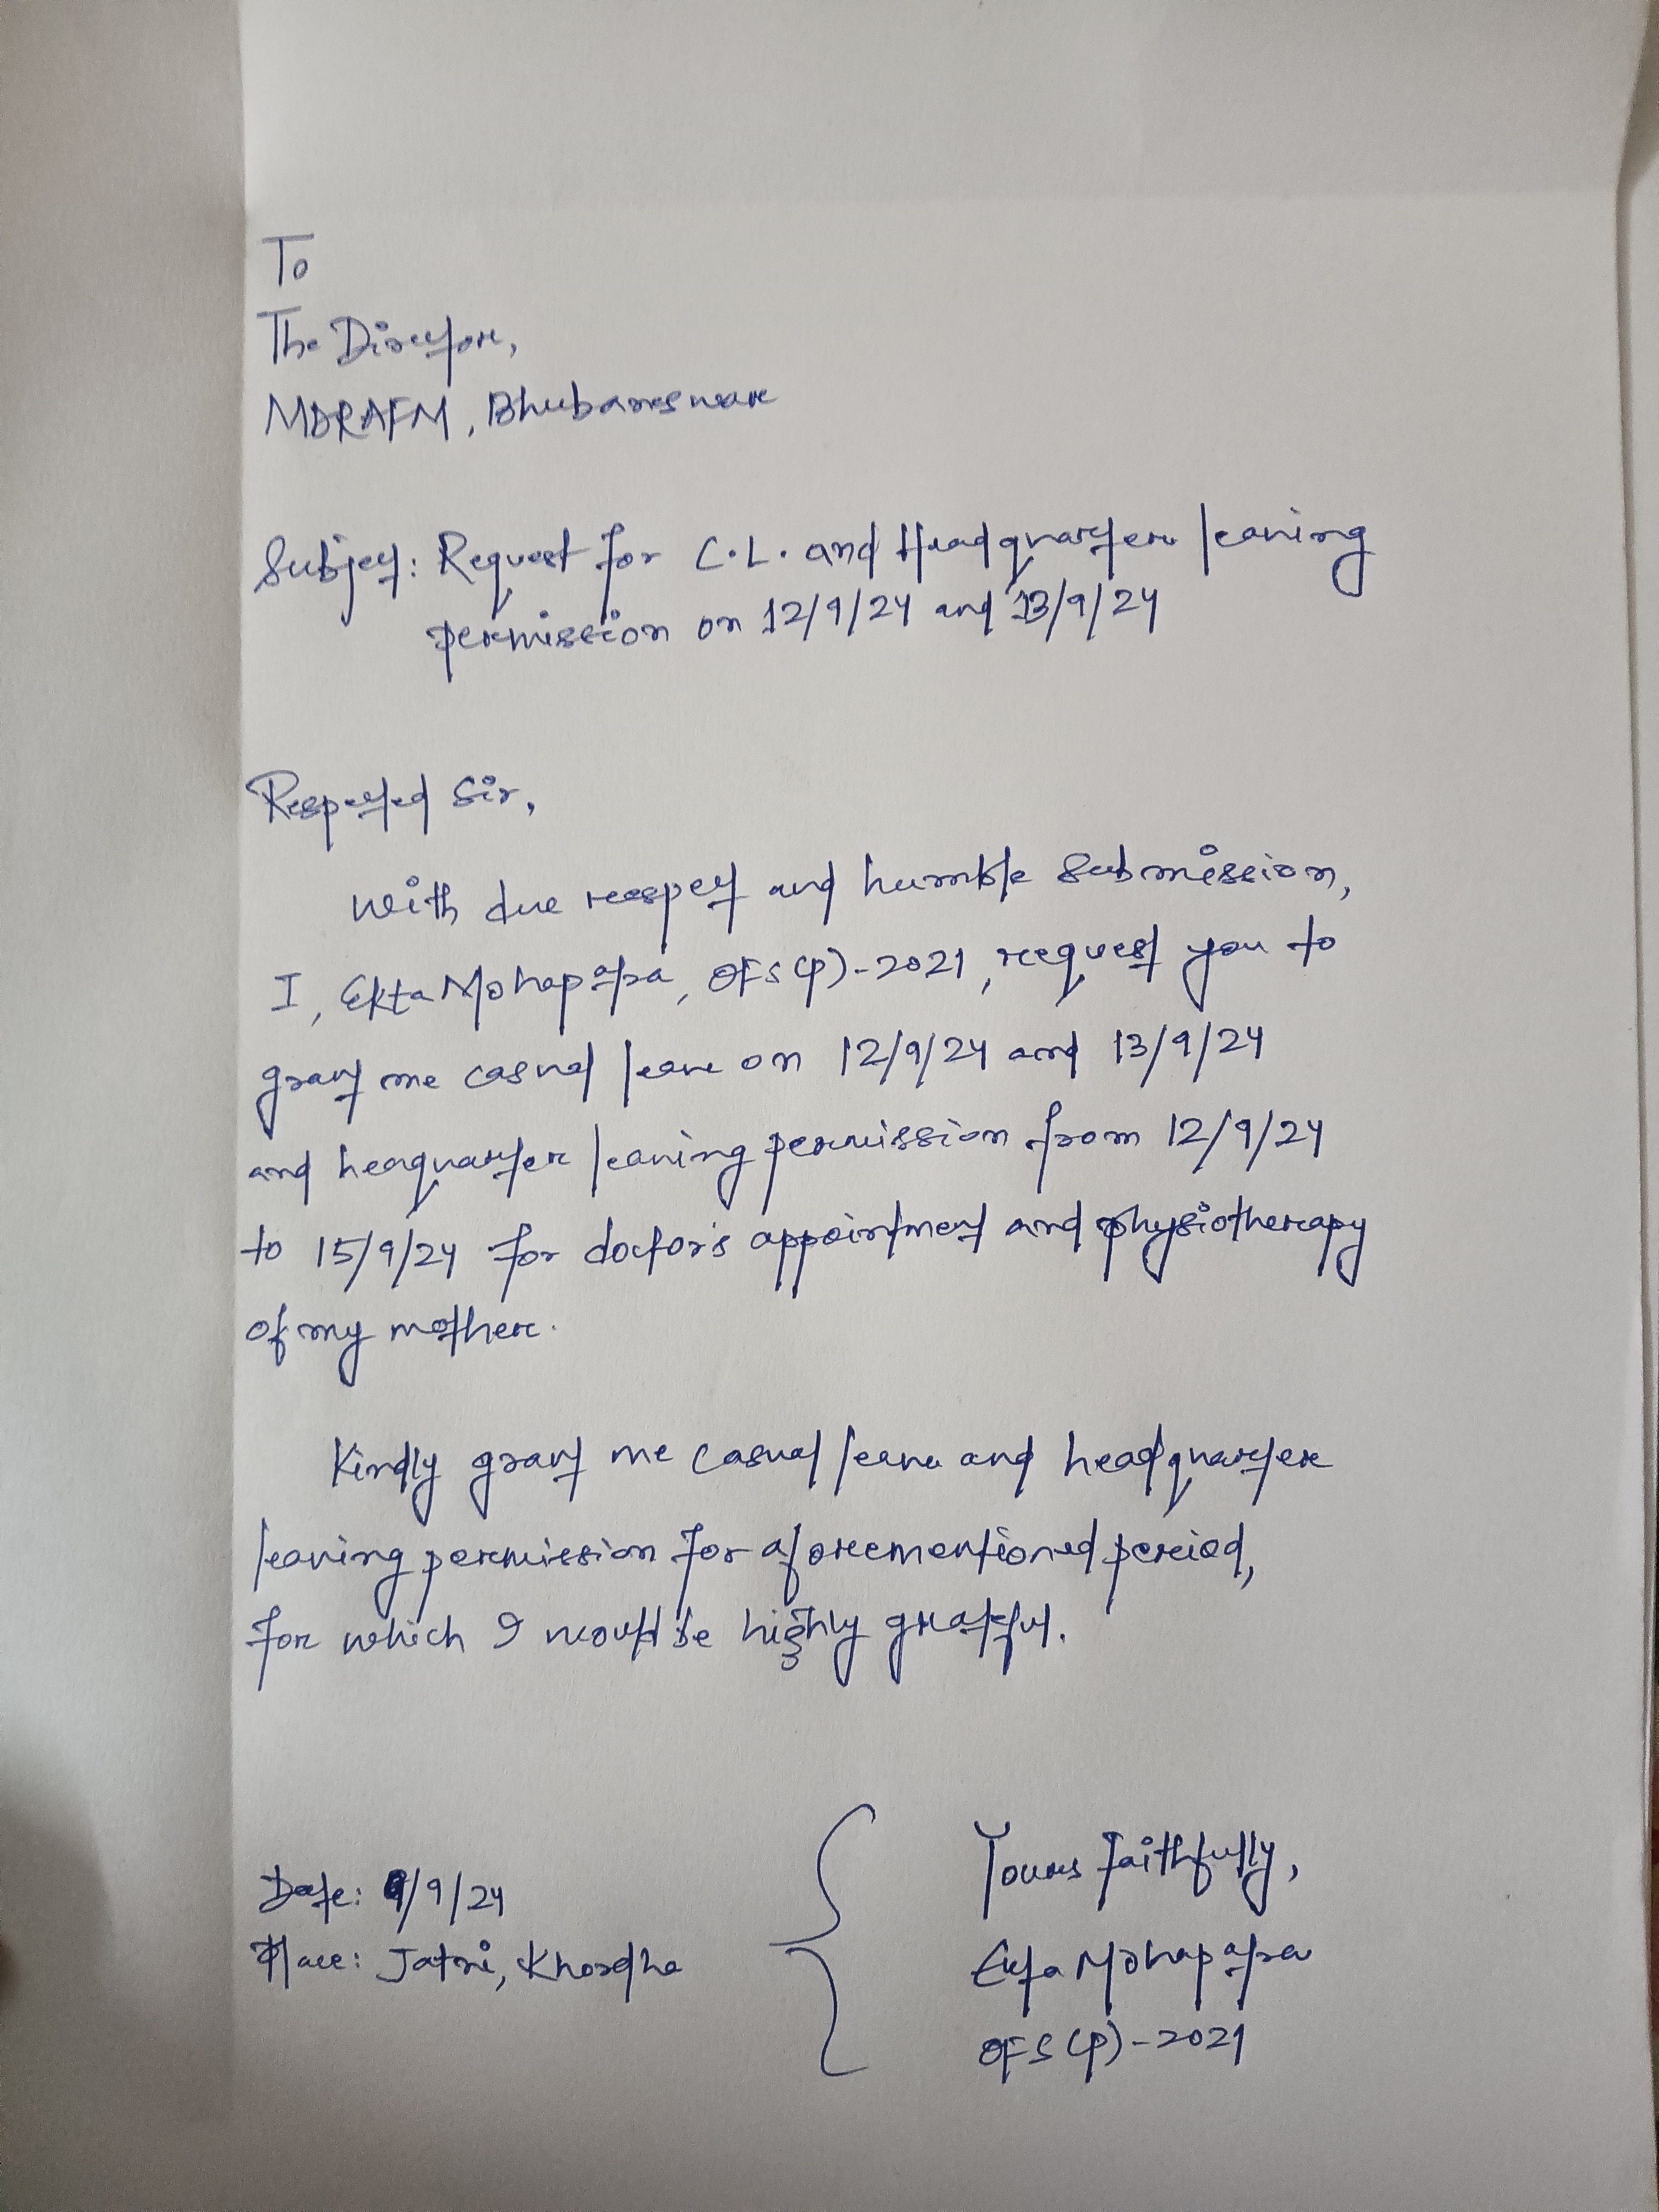 To
The Director,
MDRAFM, Bhubaneswar
Subject: Request for C.L. and Headquarter leaving
permission on 12/9/24 and 13/9/24
Respected Sir,
With due respect and humble submission,
I, Ekta Mohapatra, OFS(P)-2021, request you to
grant me casual leave on 12/9/24 and 13/9/24
and heaquarter leaving permission from 12/9/24
to 15/9/24 for doctor's appointment and physiotherapy
of my mother.
Kindly grant me casual leave and headquarter
leaving permission for aforementioned period,
for which I would be highly grateful.
Date: 9/9/24
Place: Jatni, Khordha
Yours faithfully,
Ekta Mohapatra
OFS(P)-2021